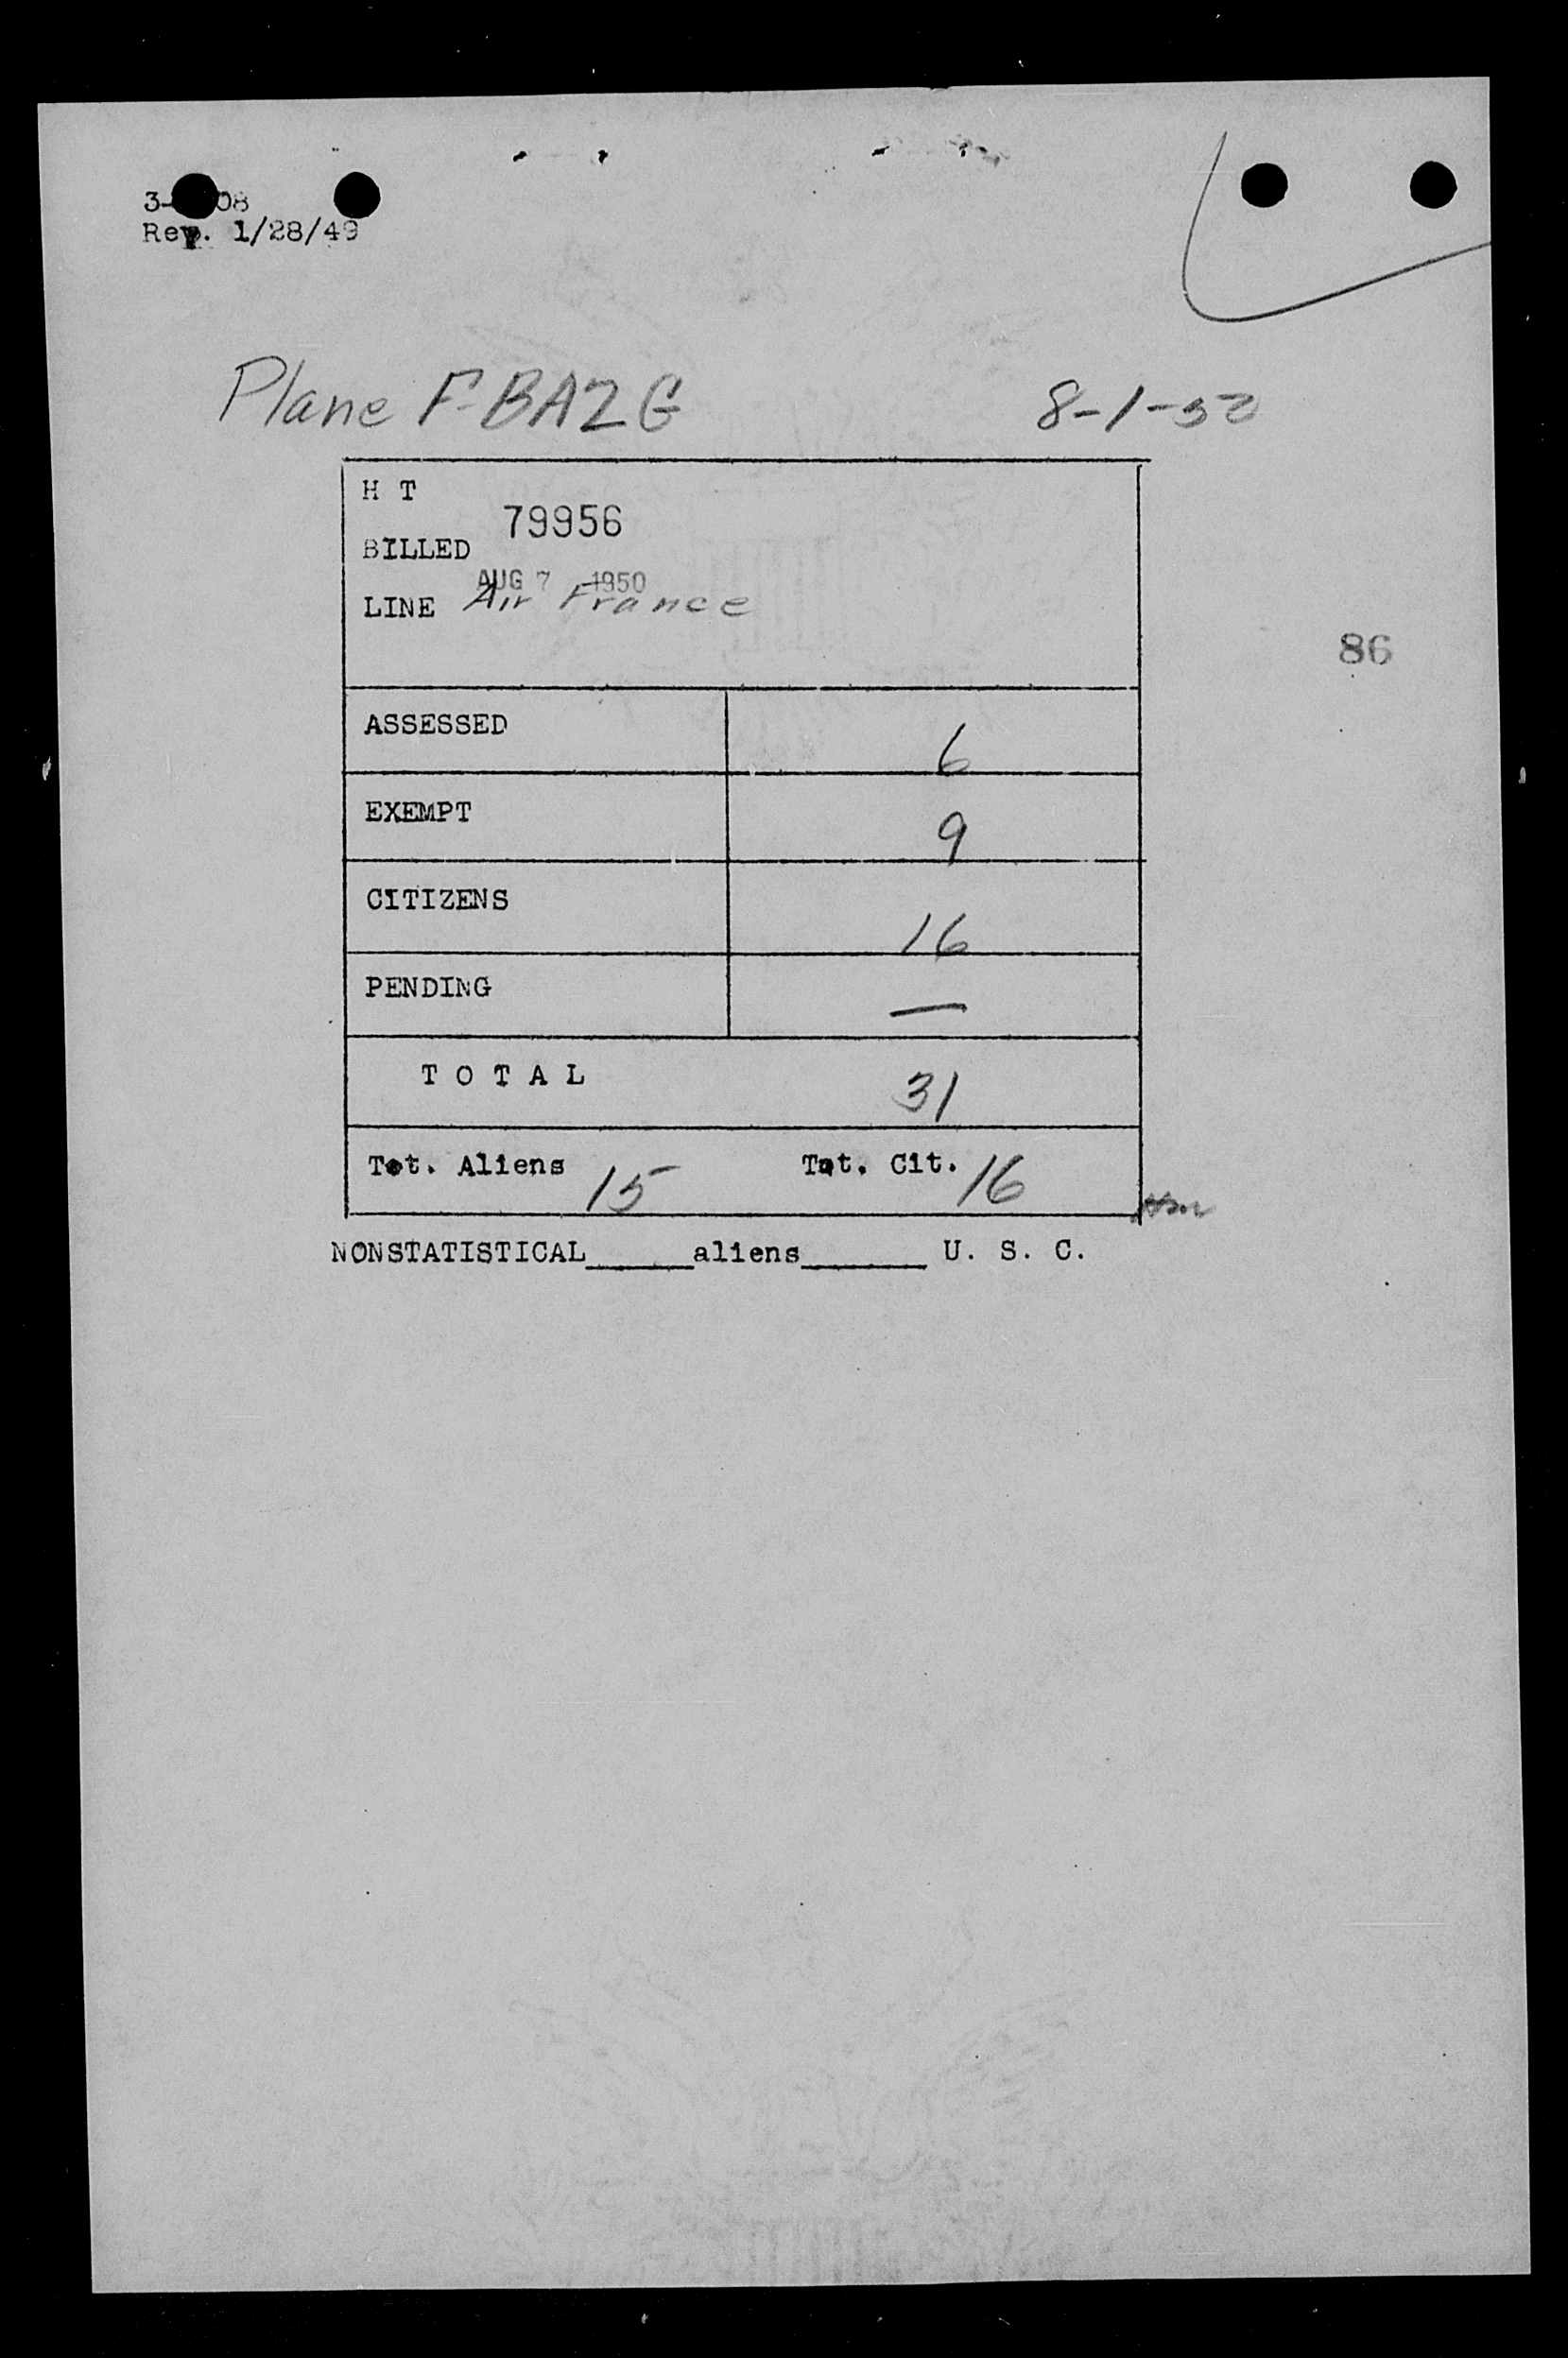 3- 08
Rev. 1/28/49
Plane F-BAZG 8-1-50
H T
79956
BILLED
AUG 7 1950
LINE Air France
86
ASSESSED 6
EXEMPT 9
CITIZENS 16
PENDING —
T O T A L 31
Tot. Aliens 15 Tot. Cit. 16
NONSTATISTICAL______aliens_______ U. S. C.